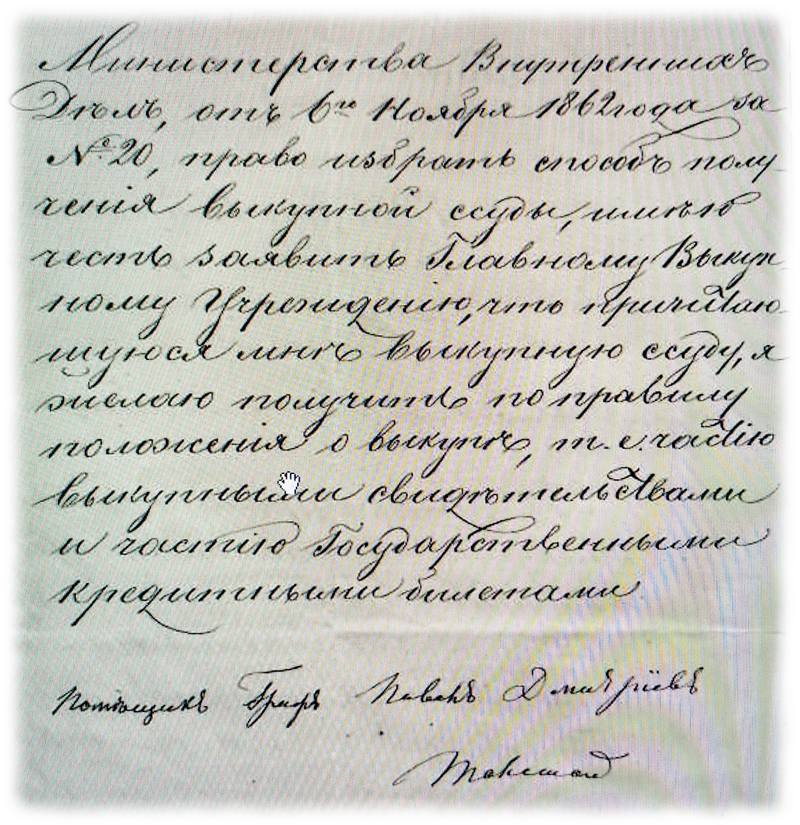 Министерства Внутреннихъ
Дѣлъ, отъ 6го Ноября 1862 года за
№ 20, право избрать способъ полу-
ченія выкупной ссуды, имѣю
честь заявить Главному Выкуп-
ному Учрежденію, что причитаю-
щуюся мнѣ выкупную ссуду, я
желаю получить по правилу
положенія о выкупѣ, т. е. частію
выкупными свидѣтельствами
и частію Государственными
кредитными билетами
Помѣщикъ Графъ Павелъ Дмитріевъ